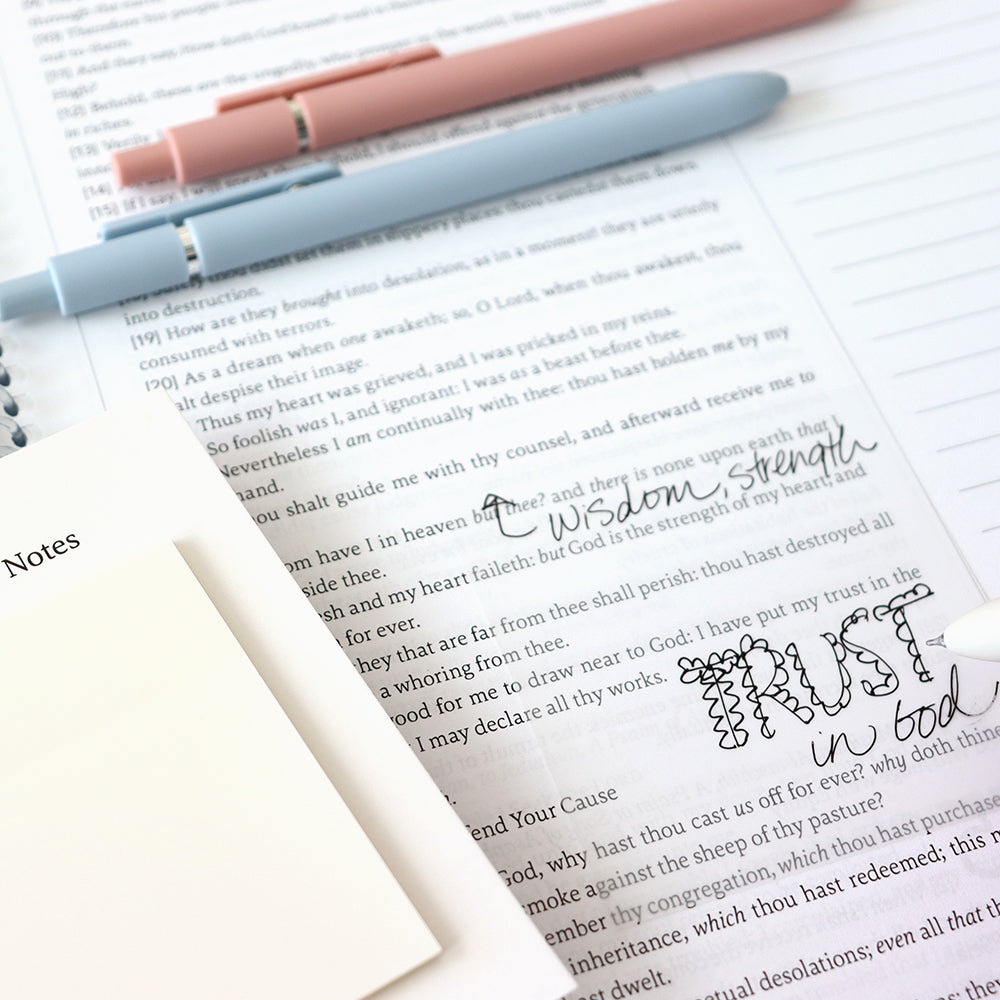 out to them.
[11] And they say, How doth God know? and is
High?
[12] Behold, these are the ungodly, who prosper in the world; they increase
in riches.
[13] Verily
[14]
[15] If I say, I will speak behold, I should offend against the generation
thou didst set them in slippery places: thou castedst them down
into destruction.
[19] How are they brought into desolation, as in a moment! they are utterly
consumed with terrors.
[20] As a dream when one awaketh; so, O Lord, when thou awakest, thou
alt despise their image.
Thus my heart was grieved, and I was pricked in my reins.
So foolish was I, and ignorant: I was as a beast before thee.
Nevertheless I am continually with thee: thou hast holden me by my
hand.
ou shalt guide me with thy counsel, and afterward receive me to
om have I in heaven but thee? and there is none upon earth that I
↑ wisdom, strength
side thee.
sh and my heart faileth: but God is the strength of my heart, and
for ever.
hey that are far from thee shall perish: thou hast destroyed all
a whoring from thee.
ood for me to draw near to God: I have put my trust in the
I may declare all thy works.
TRUST
in God
end Your Cause
God, why hast thou cast us off for ever? why doth thine
moke against the sheep of thy pasture?
ember thy congregation, which thou hast purchase
inheritance, which thou hast redeemed; this m
st dwelt.
etual desolations; even all that th
Notes